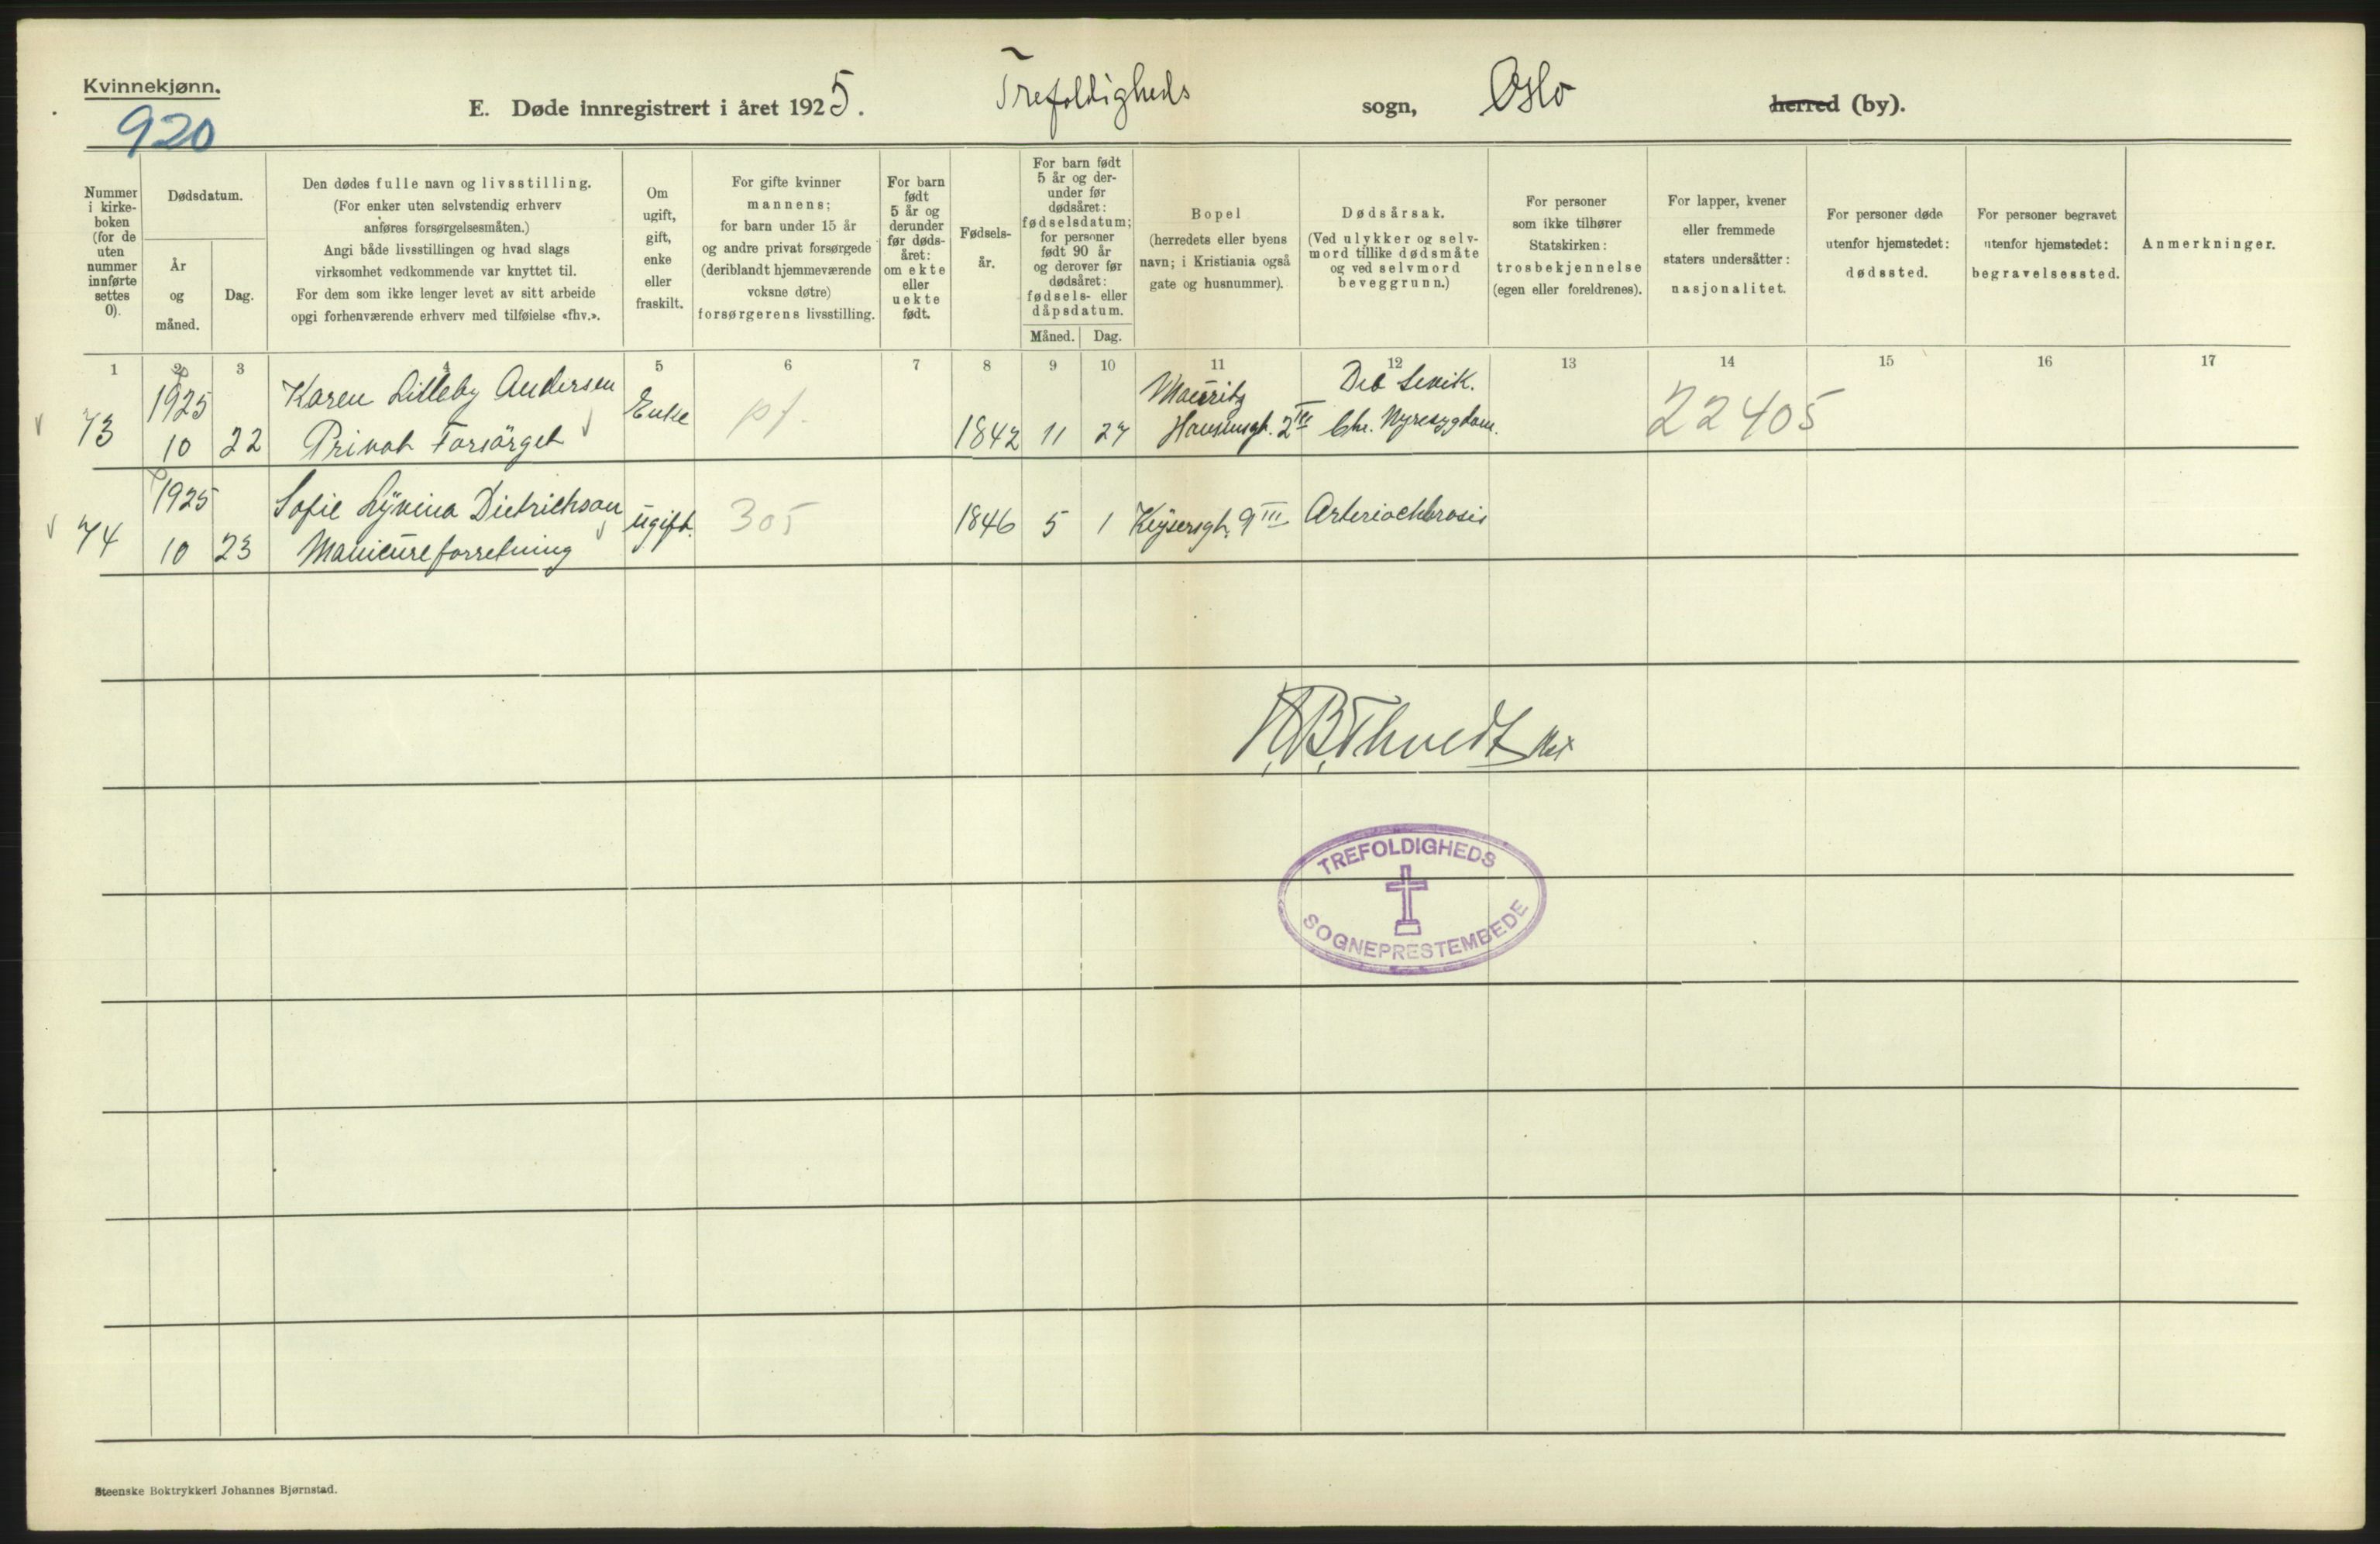 Kvinnekjønn.
920
E. Døde innregistrert i året 1925. Trefoldigheds sogn, Oslo herred (by).
Nummer
i kirke-
boken
(for de
uten
nummer
innførte
settes
0).
Dødsdatum.
År
og
måned.
Dag.
Den dødes fulle navn og livsstilling.
(For enker uten selvstendig erhverv
anføres forsørgelsesmåten.)
Angi både livsstillingen og hvad slags
virksomhet vedkommende var knyttet til.
For dem som ikke lenger levet av sitt arbeide
opgi forhenværende erhverv med tilføielse «fhv.».
Om
ugift,
gift,
enke
eller
fraskilt.
For gifte kvinner
mannens;
for barn under 15 år
og andre privat forsørgede
(deriblandt hjemmeværende
voksne døtre)
forsørgerens livsstilling.
For barn
født
5 år og
derunder
før døds-
året:
om ekte
eller
uekte
født.
Fødsels-
år.
For barn født
5 år og der-
under før
dødsåret:
fødselsdatum;
for personer
født 90 år
og derover før
dødsåret:
fødsels- eller
dåpsdatum.
Måned. Dag.
Bopel
(herredets eller byens
navn; i Kristiania også
gate og husnummer).
Dødsårsak.
(Ved ulykker og selv-
mord tillike dødsmåte
og ved selvmord
beveggrunn.)
For personer
som ikke tilhører
Statskirken:
trosbekjennelse
(egen eller foreldrenes).
For lapper, kvener
eller fremmede
staters undersåtter:
nasjonalitet.
For personer døde
utenfor hjemstedet:
dødssted.
For personer begravet
utenfor hjemstedet:
begravelsessted.
Anmerkninger.
1 2 3 4 5 6 7 8 9 10 11 12 13 14 15 16 17
1925 Karen Lilleby Andersen Enke pf. Mauritz Deb Senik.
73 10 22 Privat Forsörget 1842 11 27 Hansensgt. 2 III Chr. Nyresygdom. 22405
1925 Sofie Lyvina Dietrichson ugift. 305 1846 5 1 Keysersgt. 9 III Arteriosklerosis
74 10 23 Manicureforretning
TREFOLDIGHEDS
SOGNEPRESTEMBEDE
Steenske Boktrykkeri Johannes Bjørnstad.